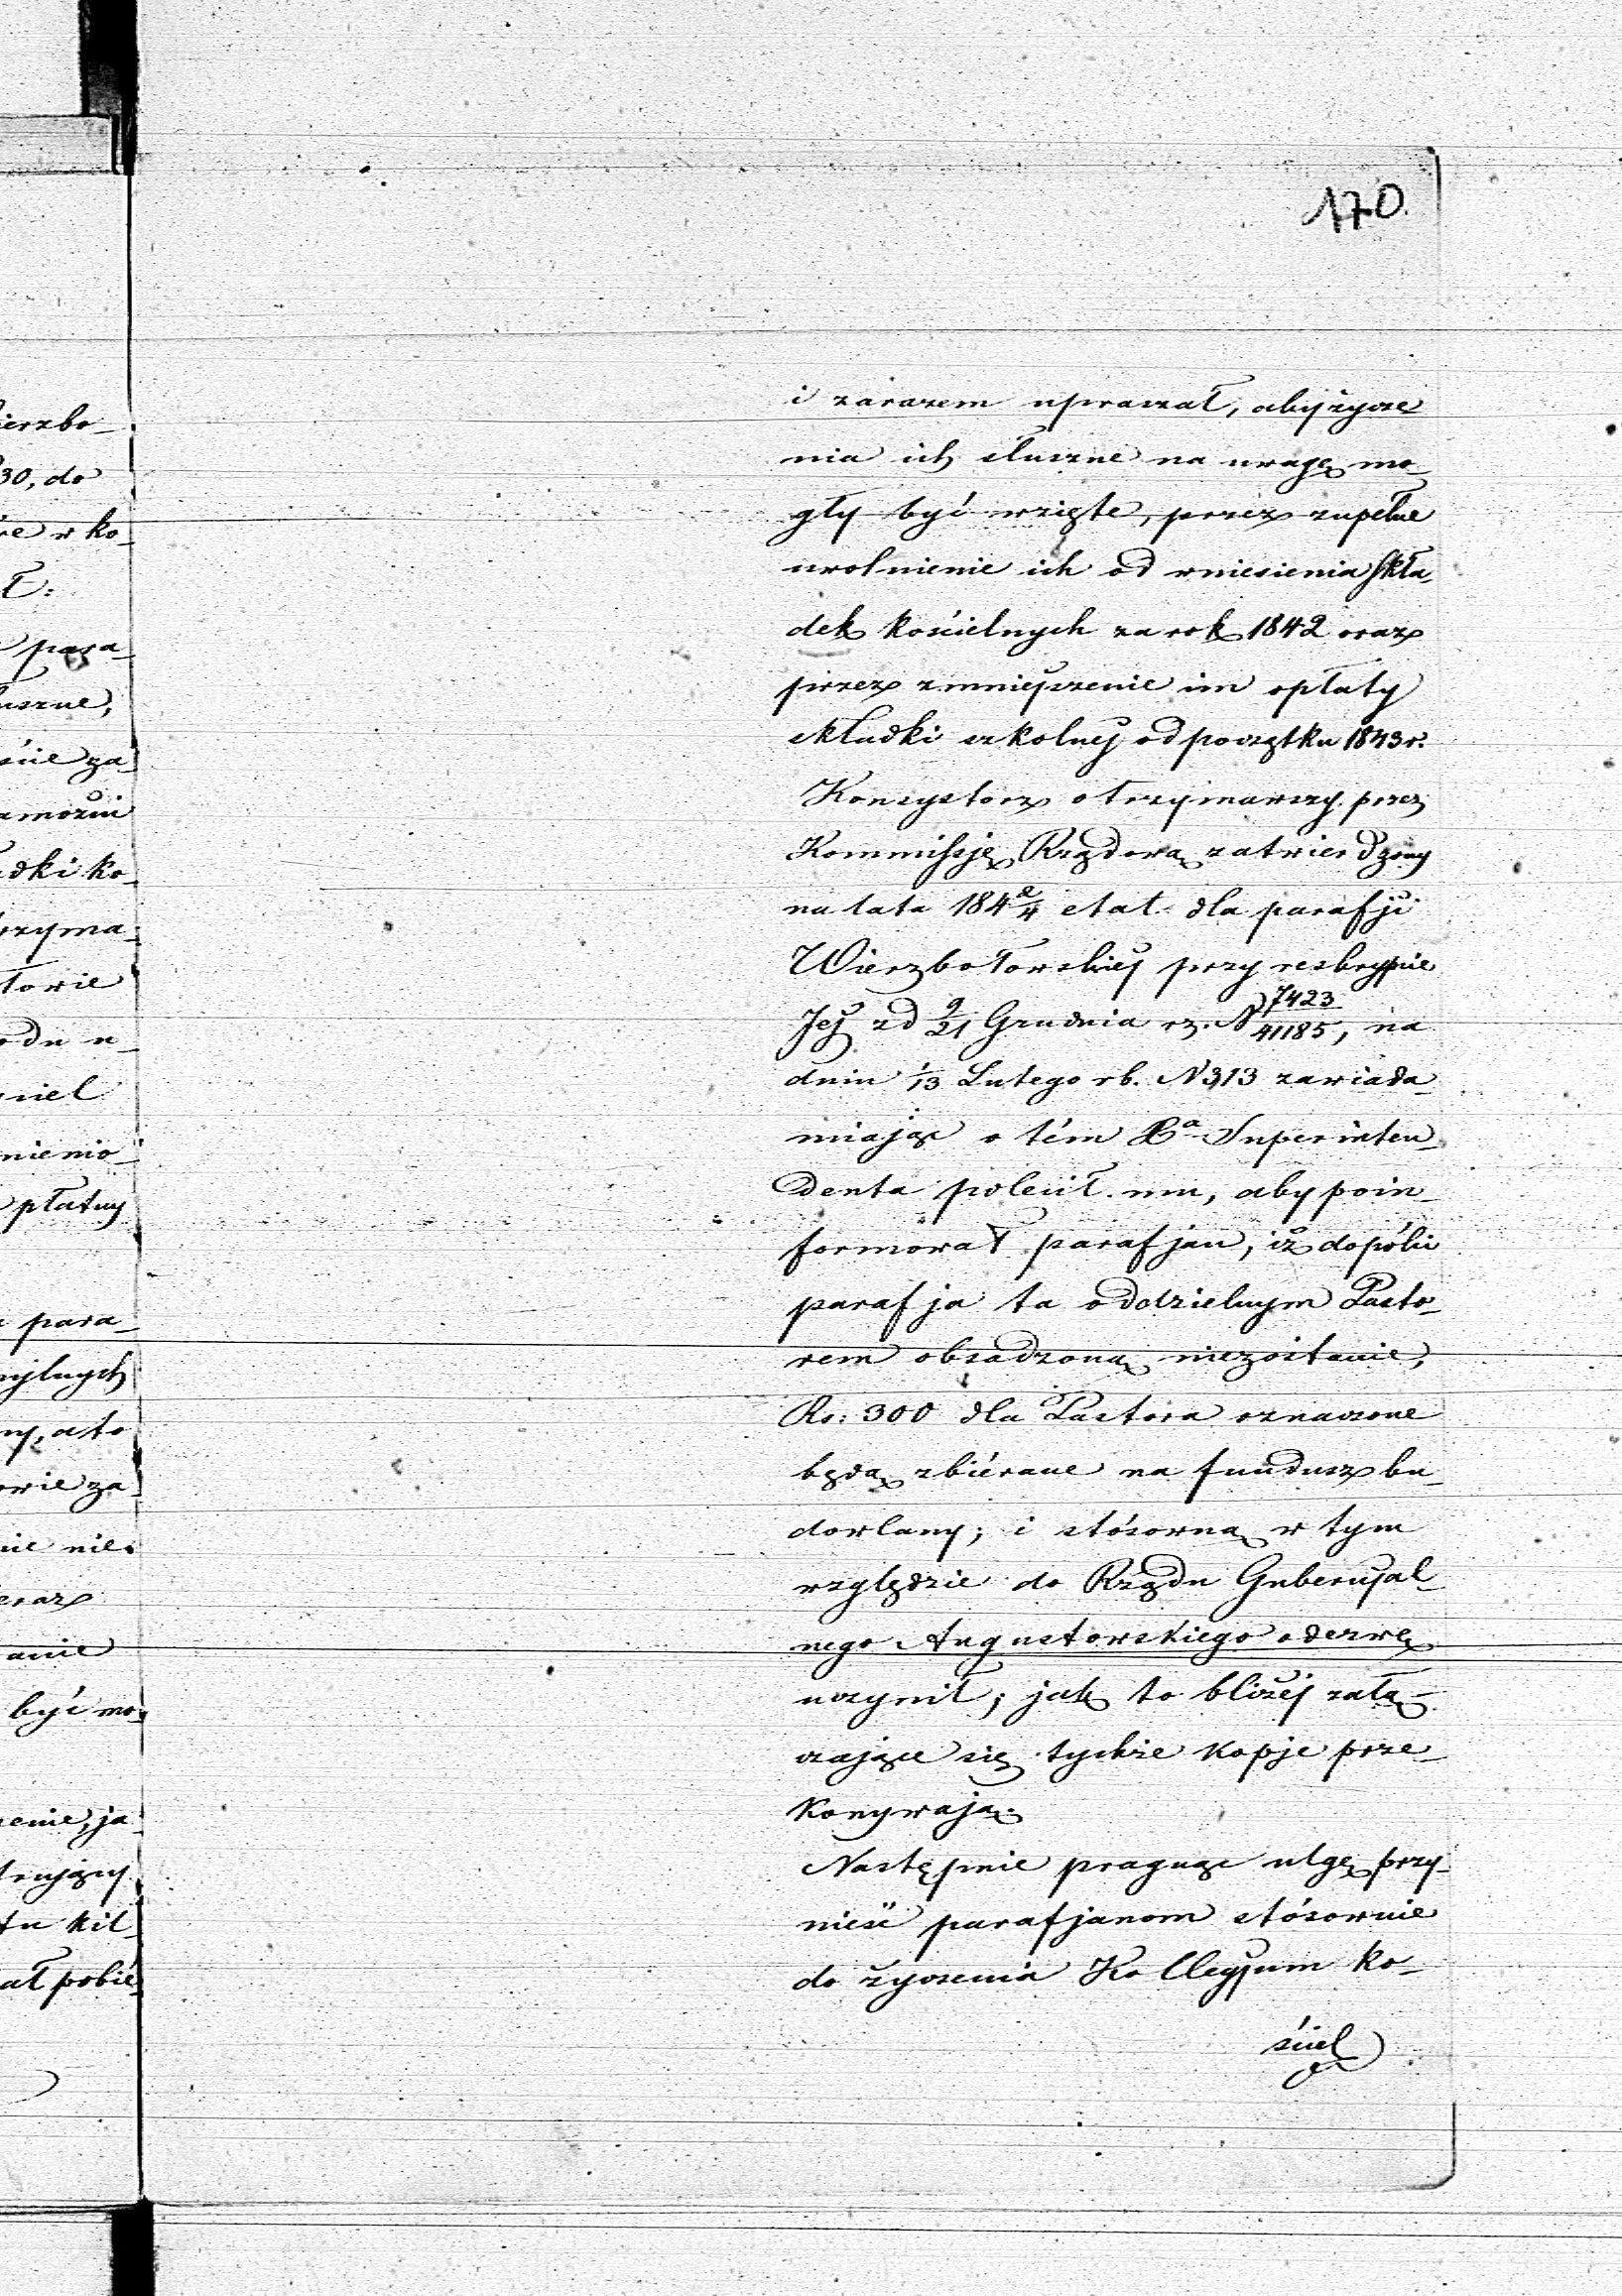 170.
i zarazem upraszał, aby życze
nia ich słuszne na uwagę mo_
gły być wzięte, przez zupełne
uwolnienie ich od wniesienia skła_
dek kościelnych za rok 1842 oraz
przez zmniejszenie im opłaty
składki szkolnéj od początku 1843 r.
Konsystorz otrzymawszy przez
Kommissję Rządową zatwierdzony
na lata 184 2/4 etat dla parafji
Wierzbołowskiéj przy reskrypcie
Jéj z d 9/21 Grudnia rz. N 7423/41185, na
dniu 1/13 Lutego rb. N 313 zawiada_
miając o tém Xa Superinten_
denta polecił mu, aby poin_
formował parafjan, iż dopóki
parafja ta oddzielnym Pasto_
rem obsadzoną niezostanie,
Rs: 300 dla Pastora oznaczone
będą zbiérane na fundusz bu_
dowlany; i stósowną w tym
względzie do Rządu Gubernjal_
nego Augustowskiego odezwę
uczynił; jak to bliżéj załą_
czające się tychże kopje prze_
konywają.
Następnie pragnąc ulgę przy_
nieść parafjanom stósownie
do życzenia Kollegjum ko_
ściel
ierzbo_
30, do
re w ko_
ł:
para_
łuszne,
ście za_
amożni
adki ko_
trzyma_
łowie
odu u_
niel
nienio_
płatny
para_
cyjlnych
ny, a to
owie za_
nie nie_
eraz
anie
być mo_
zenie, ja_
trujący
tu kil_
ał pobié_